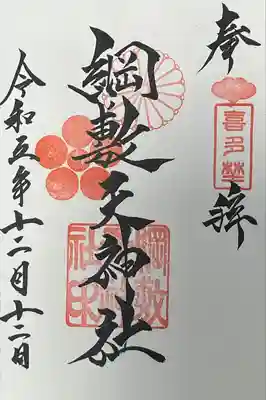 奉拝
喜多埜
綱敷天神社
綱敷天神社之印
令和五年十二月十二日